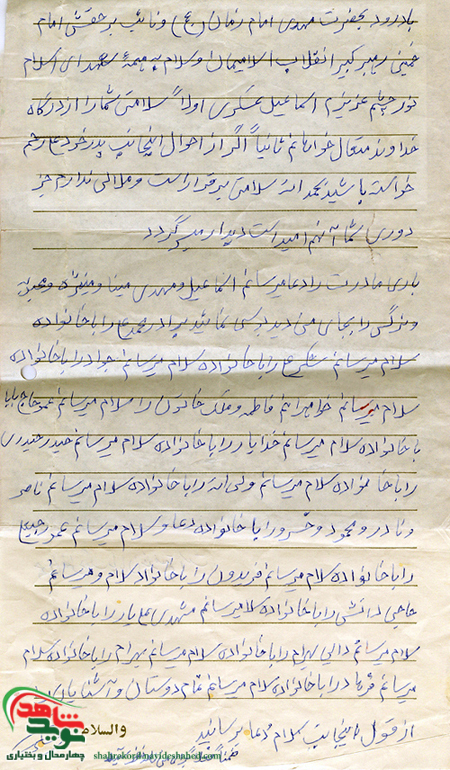 با درود بحضرت مهدی امام زمان (عج) و نائب برحقش امام
خمینی رهبر کبیر انقلاب اسلامیمان و سلام به همهٔ شهدای اسلام
نور چشم عزیزم اسماعیل عسکری اولاً سلامتی شما را از درگاه
خداوند متعال خواهانم ثانیاً اگر از احوال اینجانب پدر خود
خواسته باشید بحمدالله سلامتی برقرار است و ملالی ندارم جز
دوری شما آنهم امید است دیدار میسر گردد
باری مادرت را دعا میرسانم اسماعیل و مهدی مینا و منیژه و
و نرگس را بجای من دیده بوسی نمائید برادر را با خانواده
سلام میرسانم را با خانواده سلام میرسانم جواد را با خانواده
سلام میرسانم خواهرانم فاطمه و ملک خاتون را سلام میرسانم عمو حاج بابا
با خانواده سلام میرسانم خدایار را با خانواده سلام میرسانم حیدر حیدری
را با خانواده سلام میرسانم ولی اله را با خانواده سلام میرسانم ناصر
و نادر و محمود و خسرو را با خانواده دعا و سلام میرسانم عمو
را با خانواده سلام میرسانم فریدون را با خانواده سلام میرسانم
حاجی را با خانواده سلام میرسانم مشهدی علی یار را با خانواده
سلام میرسانم دائی بهرام را با خانواده سلام میرسانم بهرام را با خانواده سلام
میرسانم فرهاد را با خانواده سلام میرسانم تمام دوستان و آشنایان
از قول اینجانب سلام و دعا برسانید
والسلام
نوید شاهد
چهارمحال و بختیاری
shahrekord.navideshahed.com